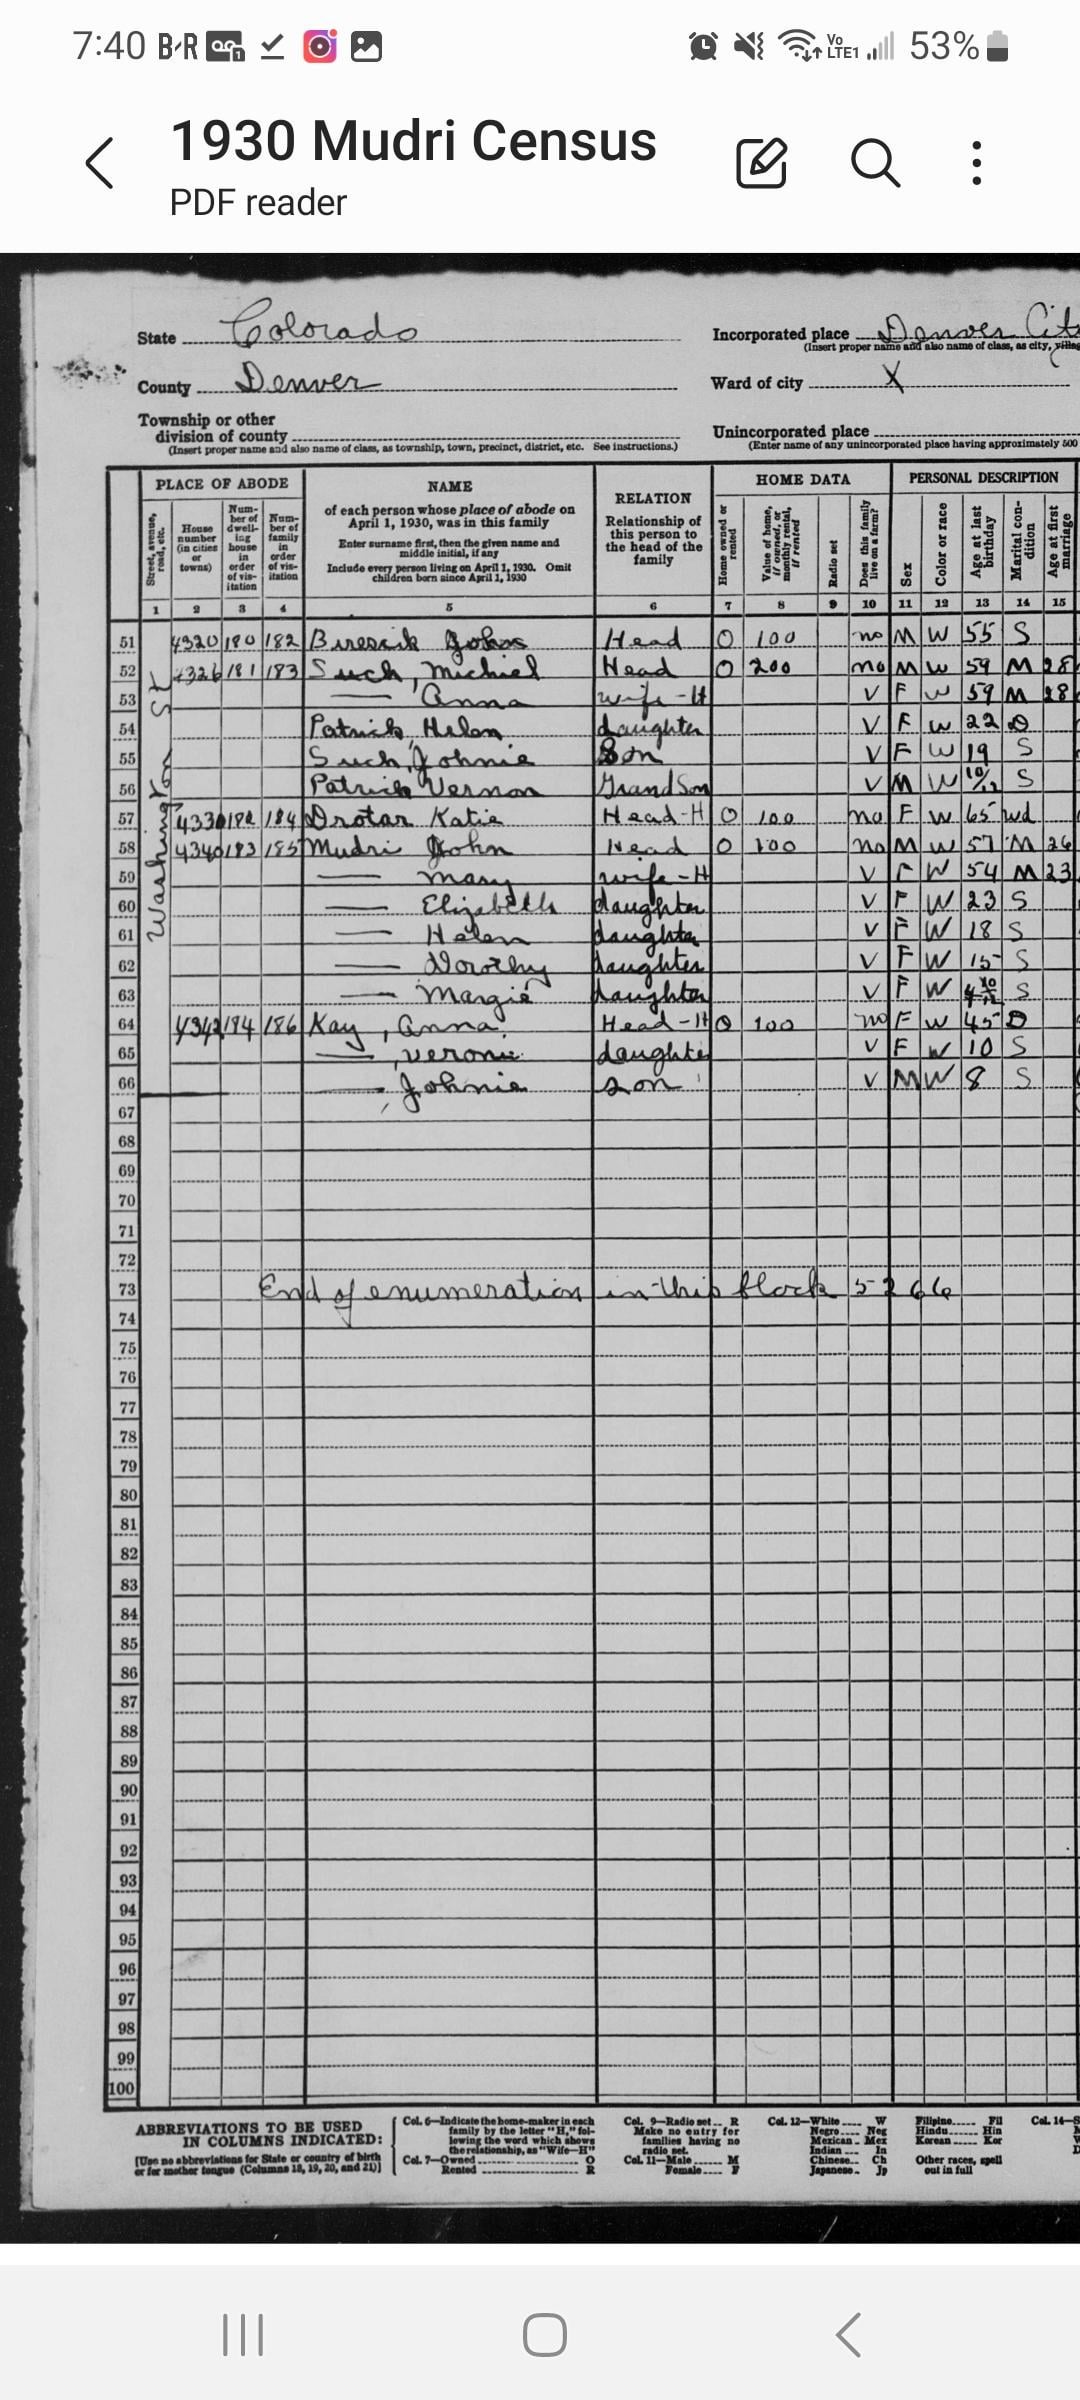 7:40 B·R
Vo LTE1 53%
1930 Mudri Census
PDF reader
State Colorado
Incorporated place Denver City
(Insert proper name and also name of class, as city, village
County Denver
Ward of city X
Township or other
division of county
(Insert proper name and also name of class, as township, town, precinct, district, etc. See instructions.)
Unincorporated place
(Enter name of any unincorporated place having approximately 500
PLACE OF ABODE
Street, avenue, road, etc.
House number (in cities or towns)
Num- ber of dwell- ing house in order of vis- itation
Num- ber of family in order of vis- itation
NAME
of each person whose place of abode on
April 1, 1930, was in this family
Enter surname first, then the given name and
middle initial, if any
Include every person living on April 1, 1930. Omit
children born since April 1, 1930
RELATION
Relationship of
this person to
the head of the
family
HOME DATA
Home owned or rented
Value of home, if owned, or monthly rental, if rented
Radio set
Does this family live on a farm?
PERSONAL DESCRIPTION
Sex
Color or race
Age at last birthday
Marital con- dition
Age at first marriage
1 2 3 4 5 6 7 8 9 10 11 12 13 14 15
Washington St
51 4320 180 182 John Head O 100 no M W 55 S
52 4326 181 183 Such, Michiel Head O 200 no M W 59 M 28
53 — Anna wife-H V F W 59 M 28
54 Patrick Helen daughter V F W 22 D
55 Such, Johnie Son V F W 19 S
56 Patrick Vernon GrandSon V M W 10/12 S
57 4330 182 184 Drotar Katie Head-H O 100 no F W 65 wd
58 4340 183 185 Mudri John Head O 100 no M W 57 M 26
59 — Mary wife-H V F W 54 M 23
60 — Elizabeth daughter V F W 23 S
61 — Helen daughter V F W 18 S
62 — Dorothy daughter V F W 15 S
63 — Margie daughter V F W S
64 4342 184 186 Kay, Anna Head-H O 100 no F W 45 D
65 —, Veronie daughter V F W 10 S
66 —, Johnie son V M W 8 S
67
68
69
70
71
72
73 End of enumeration in this block 5266
74
75
76
77
78
79
80
81
82
83
84
85
86
87
88
89
90
91
92
93
94
95
96
97
98
99
100
ABBREVIATIONS TO BE USED
IN COLUMNS INDICATED:
[Use no abbreviations for State or country of birth
or for mother tongue (Columns 18, 19, 20, and 21)]
Col. 6—Indicate the home-maker in each
family by the letter "H," fol-
lowing the word which shows
the relationship, as "Wife—H"
Col. 7—Owned O
Rented R
Col. 9—Radio set R
Make no entry for
families having no
radio set.
Col. 11—Male M
Female F
Col. 12—White W
Negro Neg
Mexican Mex
Indian In
Chinese Ch
Japanese Jp
Filipino Fil
Hindu Hin
Korean Kor
Other races, spell
out in full
Col. 14—S